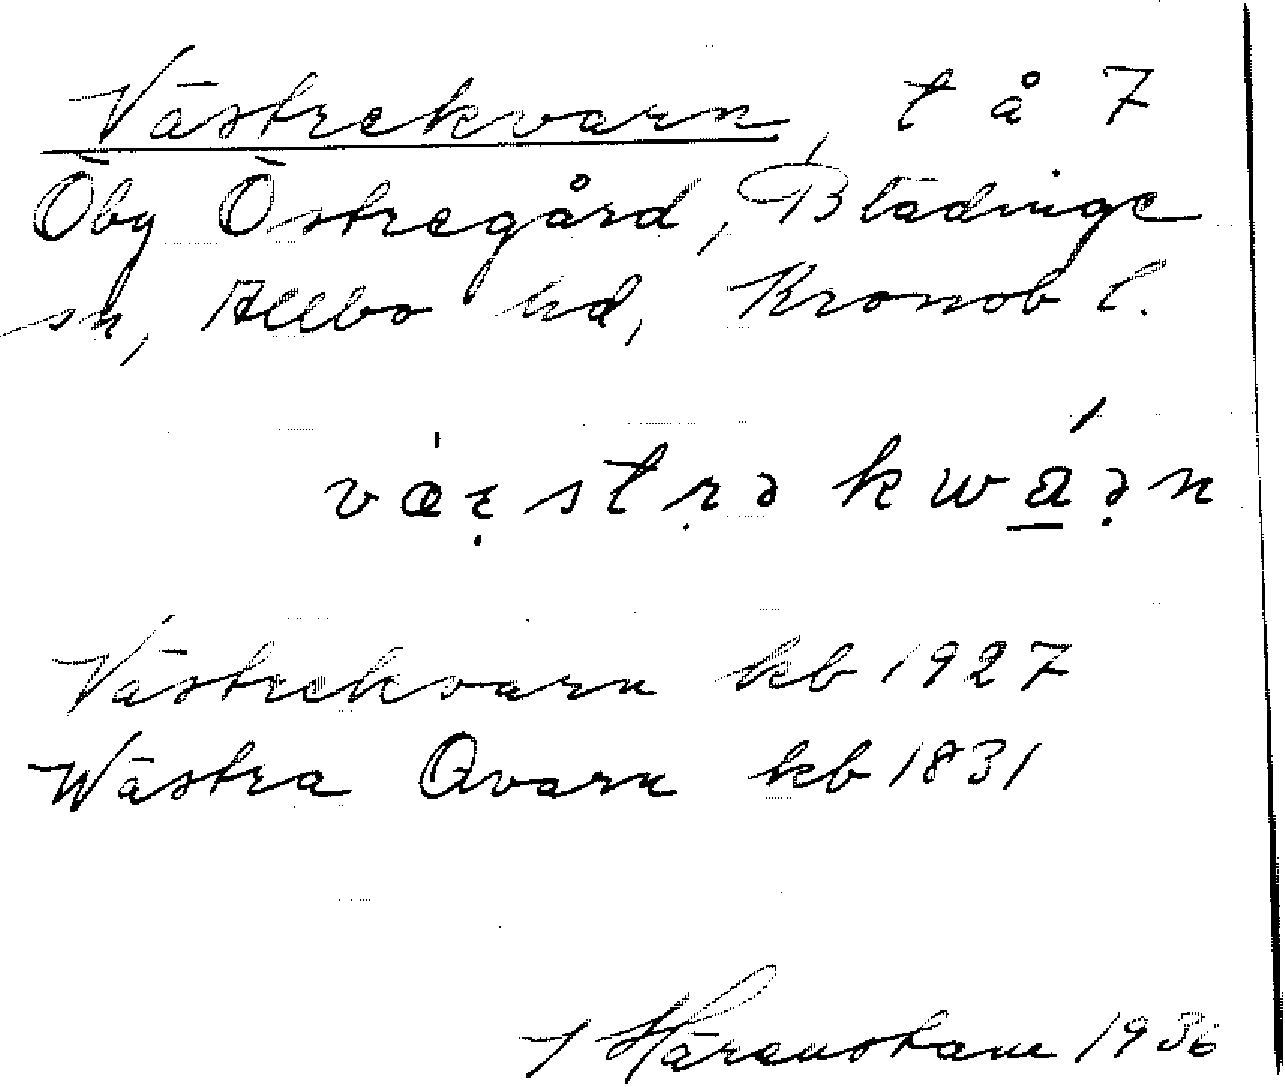 Västrekvarn, t å 7
Öby Östregård, Blädinge
sn, Allbo hd, Kronob l.
væ̣strə kwáən
Västrekvarn kb 1927
Wästra Qvarn kb 1831
Härenstam 1936